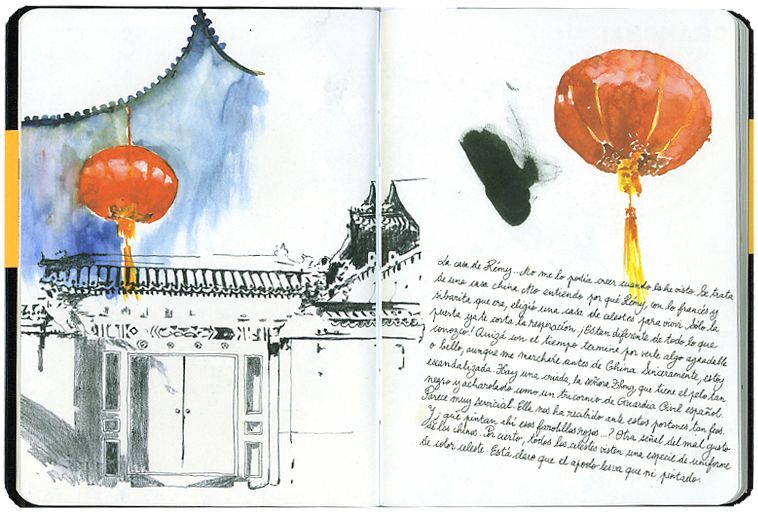 La casa de Rémy... No me lo podía creer cuando la he visto. Se trata
de una casa china. No entiendo por qué Rémy, con lo francés y
sibarita que era, eligió una casa de celestes para vivir. Sólo la
puerta ya te corta la respiración. ¡Es tan diferente de todo lo que
conozco! Quizá con el tiempo termine por verle algo agradable
o bello, aunque me marcharé antes de China. Sinceramente, estoy
escandalizada. Hay una criada, la señora Zhong, que tiene el pelo tan
negro y acharolado como un tricornio de Guardia Civil español.
Parece muy servicial. Ella nos ha recibido ante estos portones tan feos.
Y ¿qué pintan ahí esos farolillos rojos...? Otra señal del mal gusto
de los chinos. Por cierto, todos los celestes visten una especie de uniforme
de color celeste. Está claro que el apodo les va que ni pintado.